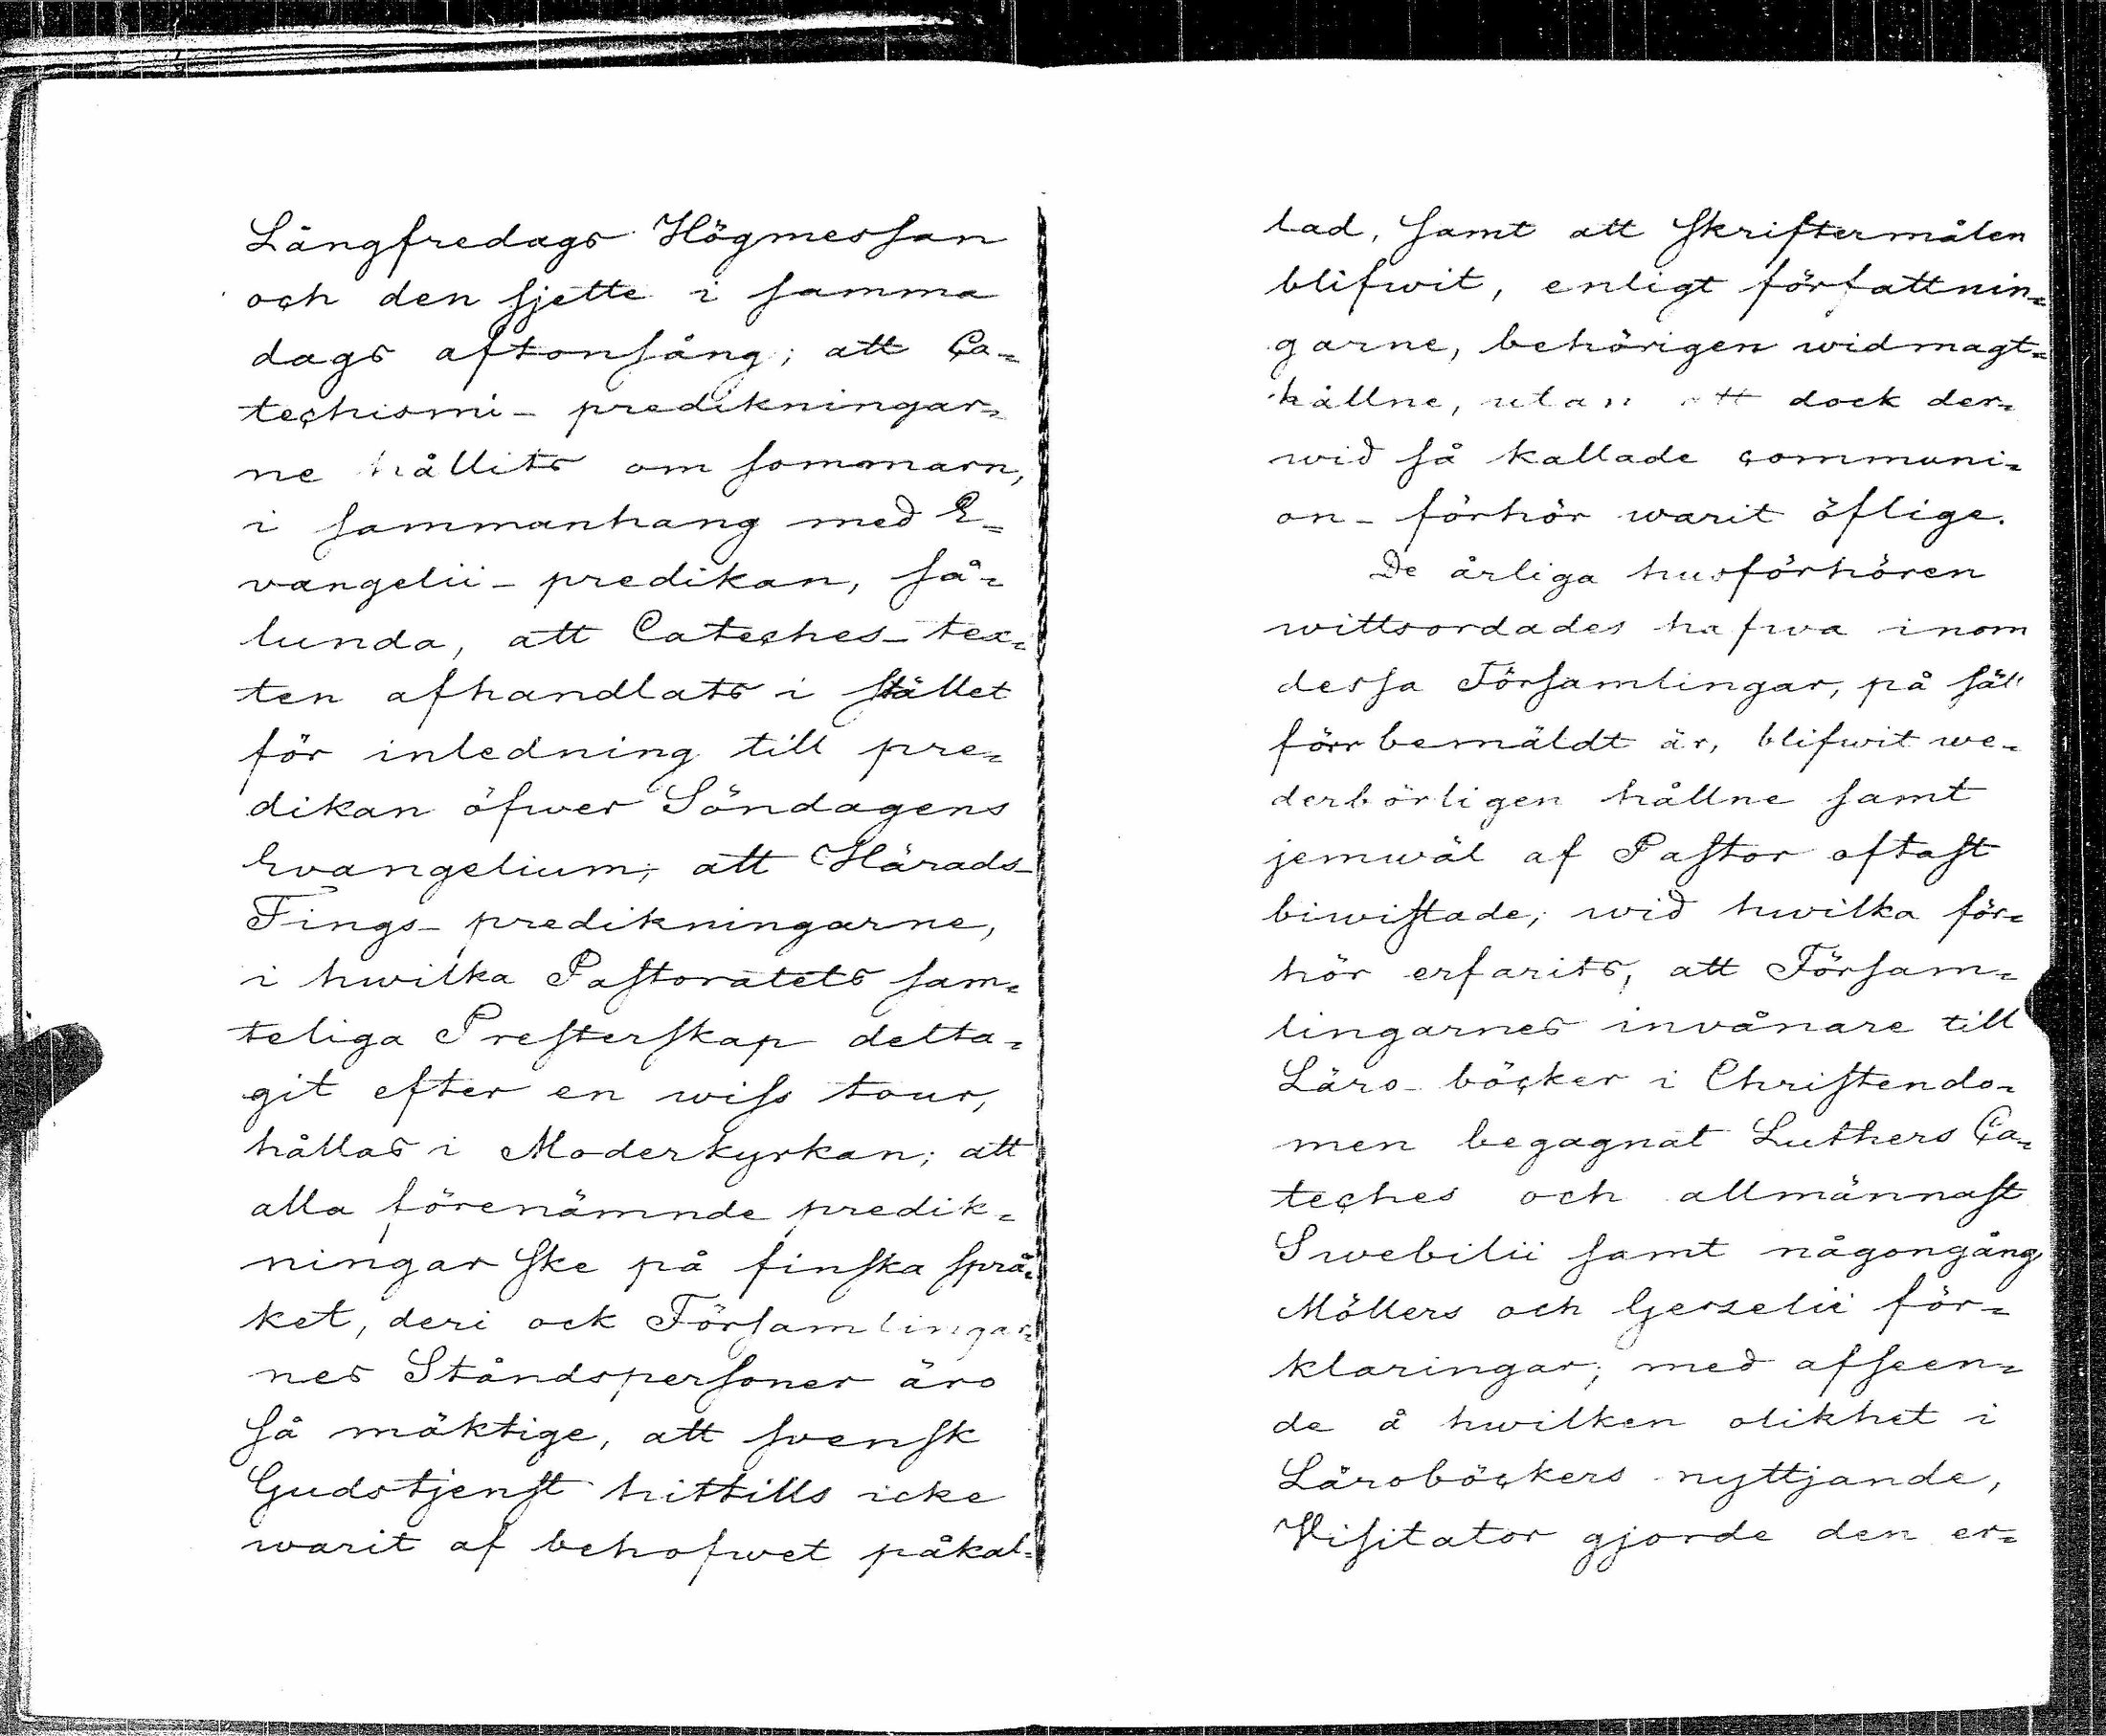 Långfredags Högmessan
och den sjette i samma
dags aftonsång; att Ca=
techismi- predikningar=
ne hållits om sommarn,
i sammanhang med E=
vangelii- predikan, så=
lunda, att Cateches- tex=
ten afhandlats i stället
för inledning till pre=
dikan öfwer Söndagens
Evangelium; att Härads-
Tings- predikningarne,
i hwilka Pastoratets sam=
teliga Presterskap delta=
git efter en wiss tour,
hållas i Moderkyrkan; att
alla förenämnde predik=
ningar ske på finska språ=
ket, deri ock Församlingar=
nes Ståndspersoner äro
så mäktige, att svensk
Gudstjenst hittills icke
warit af behofwet påkal=
lad, samt att skriftermålen
blifwit, enligt författnin=
garne, behörigen widmagt=
hållne, utan att dock der=
wid så kallade communi=
on- förhör warit öflige.
De årliga husförhören
wittsordades hafwa inom
dessa Församlingar, på sätt
förr bemäldt är, blifwit we=
derbörligen hållne samt
jemwäl af Pastor oftast
biwistade; wid hwilka för=
hör erfarits, att Försam=
lingarnes invånare till
Läro- böcker i Christendo=
men begagnat Luthers Ca=
teches och allmännast
Swebilii samt någongång
Möllers och Gerzelii för=
klaringar; med afseen=
de å hwilken olikhet i
Läroböckers nyttjande,
Visitator gjorde den er=